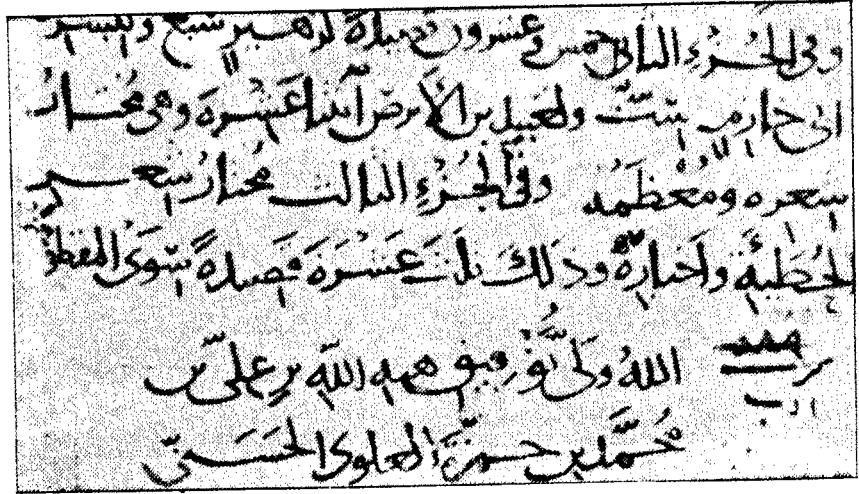 وفى الجُزءِ الثانى خمس وعشرون قصيدةً لزهيرٍ سبع ولبشر
ابى خازمٍ ستٌّ ولعبيد بن الأبرص اثنتا عَشْرةَ وهى مُختارُ
شعره ومُعْظَمُه وفى الجُزءِ الثالث مُختارُ شعر
الحُطَيئَةِ واخبارِهِ وذلكَ ثلثَ عَشْرَةَ قَصيدةً سِوَى
اللهُ ولىُّ توفيق هبه اللهِ بن علىّ بن
مُحَمَّد بن حمزَةَ العلوى الحَسَنىّ